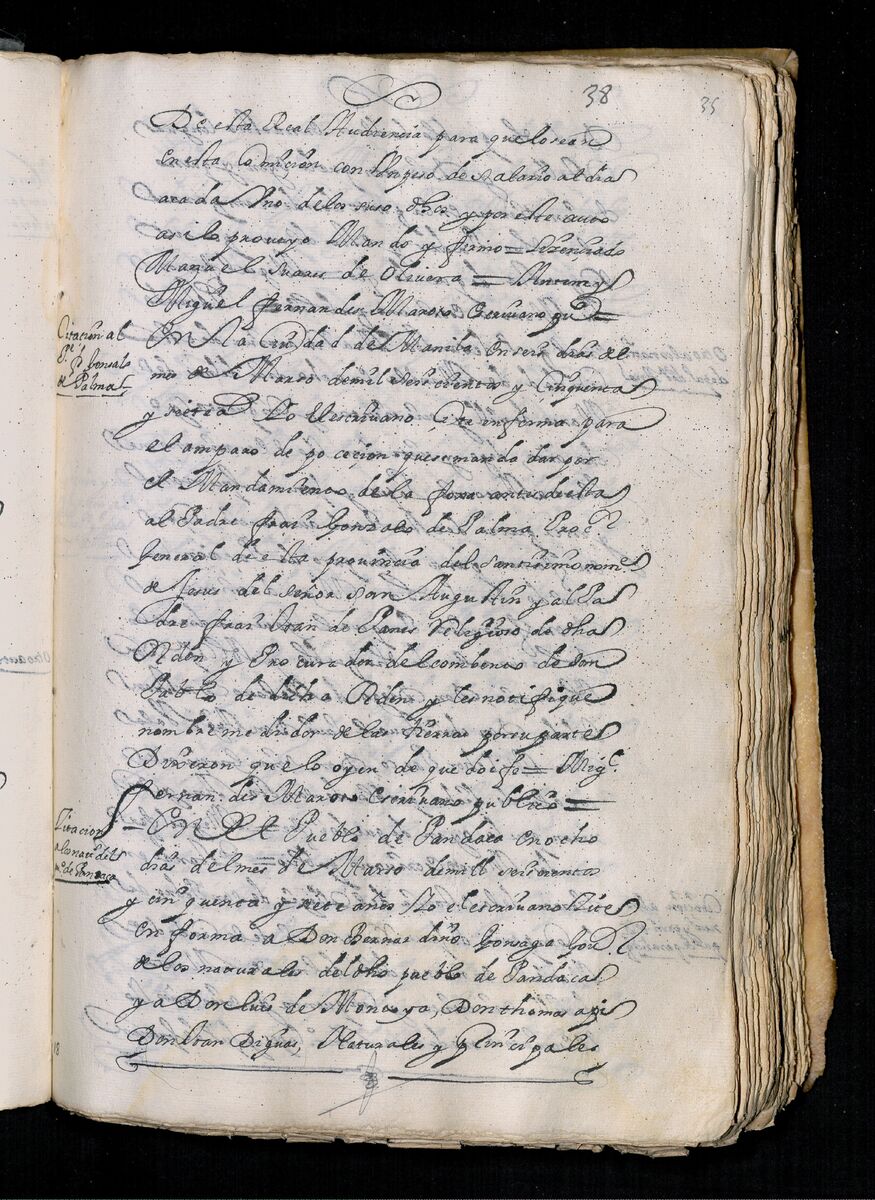 38
35
De esta Real Audiencia para que lo sean
en esta Comicion con Un peso de salario al dia
a cada Uno de los suso dhos y por este auto
asi lo proveyo Mando y firmo = Lizenciado
Manuel Suares de Olivera = Antemy
Miguel fernandes Maroto Escriuano puco =
Citacion al
Pe f
gonsalo
de Palma
En la Ciudad de Manila en seis dias del
mes de Marso de mil seiscientos y Cinquenta
y siete Yo El escriuano Cite en forma para
el amparo de pocecion que se manda dar por
el Mandamiento de la foxa antes de esta
al Padre frai Gonzalo de Palma Procor
General de esta provincia del santissimo nome
de Jesus del señor san Augustin y al Pa
dre frai Juan de Panes Religioso de dha
Orden y Procurador del combento de san
Pablo de dicha Orden y les notifique
nombre medidor de las tierras por su parte
Dixeron que lo oyen de que doi fe = Migl
fernandes Maroto Escriuano publico =
Citacion
a los natus del
po de Pandaca
En El Pueblo de Pandaca en ocho
dias del mes de Marso de mill seiscientos
y cinquenta y siete años Yo el escriuano Cite
en forma a Don Bernardino Gonsaga Gour
de los naturales del dho pueblo de Pandaca
y a Don Luis de Moncoya, Don thomas api
Don Juan Diguas, Naturales y principales